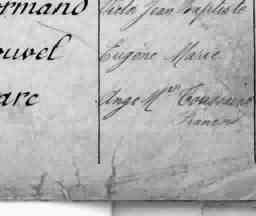 ormand Victor Jean Baptiste
ouvel Eugène Marie
arc Ange Mie Toussaint
François